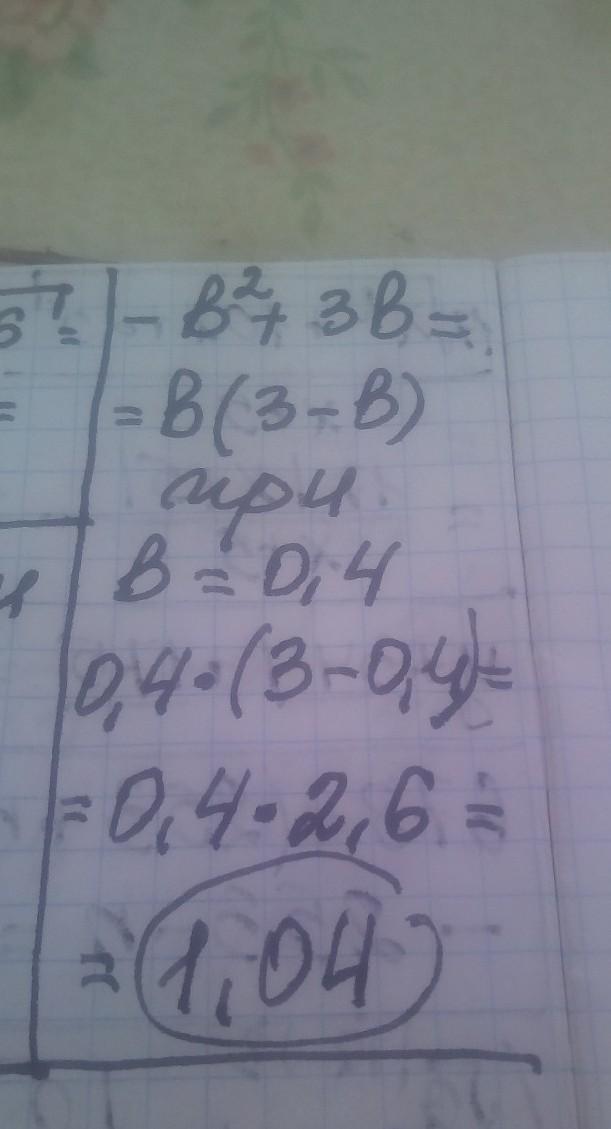 - в² + 3в =
= в(3 - в)
при
в = 0,4
0,4 · (3 - 0,4) =
= 0,4 · 2,6 =
= 1,04